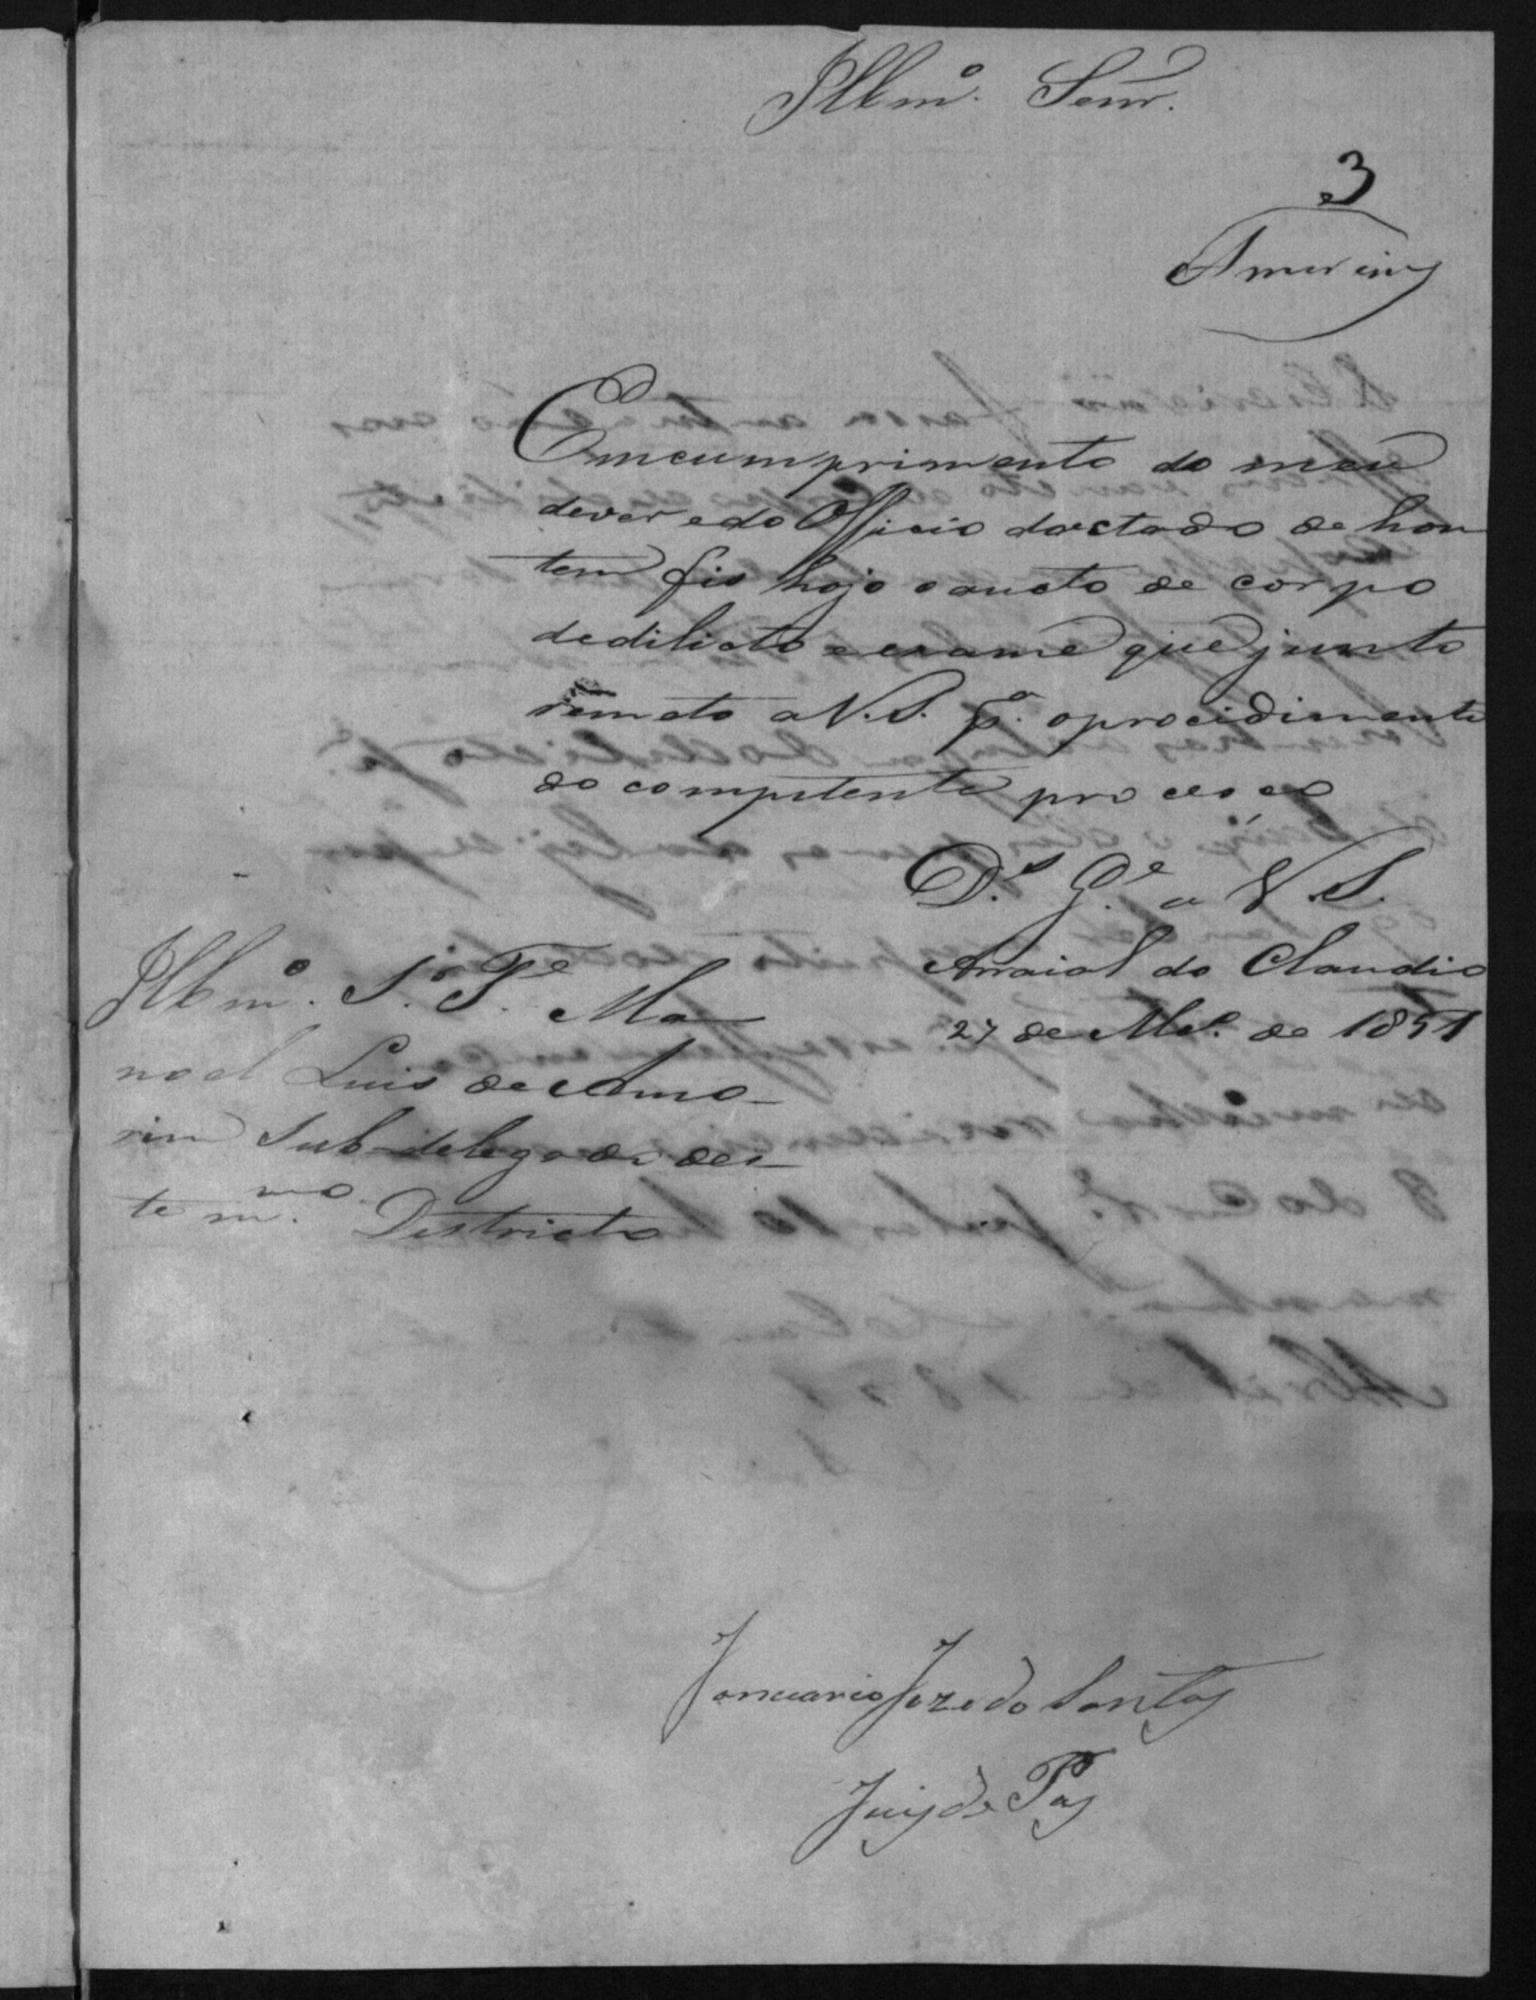 Illmº. Senr.
3
Amorim
Em cumprimento do meu
dever e do Officio dactado de hon
tem fis hoje o aucto de corpo
de dilicto e exame que junto
remeto a V. S. pª. o procidimento
do competente processo
D.s G.e a V. S.
Arraial do Claudio
27 de Mço. de 1851
Illmº. Sr. Pe. Ma
noel Luis de Amo
rim Sub-delegado des
te mmo. Districto
Januario Joze do Santos
Juiz de Paz